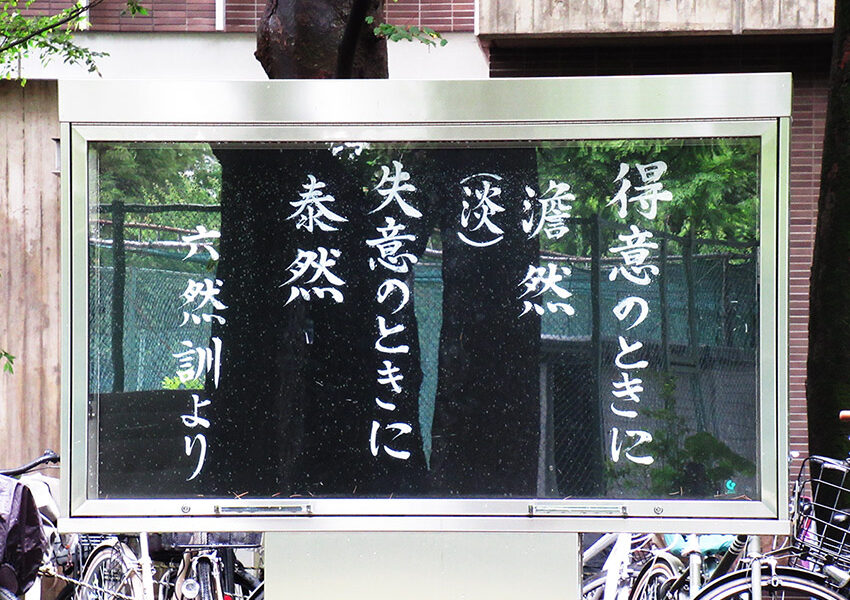 得意のときに
澹然
(淡)
失意のときに
泰然
六然訓より